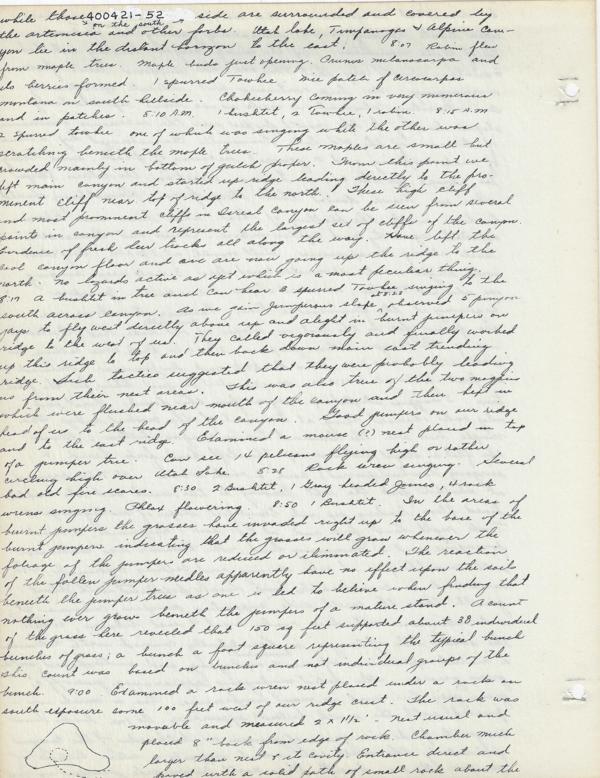 while those 400421-52 on the south side are surrounded and covered by
the artemisia and other forbs. Utah lake, Timpanogos & Alpine Can-
yon lie in the distant horizon to the east. 8:07 Robin flew
from maple trees. Maple buds just opening. Prunus melanocarpa and
do berries formed. 1 spurred Towhee. Nice patch of Cercocarpus
montana on south hillside. Chokecherry coming in very numerous
and in patches. 8:10 A.M. 1 bushtit, 2 Towhee, 1 robin. 8:15 A.M
2 spurred towhee one of which was singing while the other was
scratching beneath the maple trees. These maples are small but
crowded mainly in bottom of gulch proper. From this point we
left main canyon and started up ridge leading directly to the pro-
minent cliff near top of ridge to the north. These high cliff
and most prominent cliffs in Israel Canyon can be seen from several
points in canyon and represent the largest set of cliffs of the canyon.
Evidence of fresh deer tracks all along the way. Have left the
cool canyon floor and are now going up the ridge to the
north. No lizards active as yet which is a most peculiar thing.
8:17 A bushtit in tree and can hear a spurred Towhee singing to the
south across canyon. As we gain Juniperous slope, at 8:23 observed 5 pinyon
jays to fly west directly above us and alight in burnt junipers on
ridge to the west of us. They called vigorously and finally worked
up this ridge to top and then back down main east trending
ridge. Such tactics suggested that they were probably leading
us from their nest areas. This was also true of the two magpies
which were flushed near mouth of the canyon and then kept in
head of us to the head of the canyon. Good junipers on our ridge
and to the east ridge. Examined a mouse (?) nest placed in top
of a juniper tree. Can see 14 pelicans flying high or rather
circling high over Utah Lake. 8:28 Rock wren singing. Several
bad old fire scares. 8:30 2 Bushtit, 1 Gray headed Junco, 4 rock
wrens singing. Phlox flowering. 8:50 1 Bushtit. In the areas of
burnt junipers the grasses have invaded right up to the base of the
burnt junipers indicating that the grasses will grow whenever the
foliage of the junipers are reduced or iliminated. The reaction
of the fallen juniper needles apparently have no effect upon the soils
beneath the juniper tree as one is led to believe when finding that
nothing ever grows beneath the junipers of a mature stand. A count
of the grass here revealed that 150 sq feet supported about 38 individual
bunches of grass; a bunch a foot square representing the typical bunch
this count was based on bunches and not individual groups of the
bunch. 9:00 Examined a rock wren nest placed under a rock on
south exposure some 100 feet west of our ridge crest. The rock was
movable and measured 2 x 1 1/2'. Nest usual and
placed 8" back from edge of rock. Chamber much
larger than nest & its cavity. Entrance direct and
paved with a solid path of small rock about the